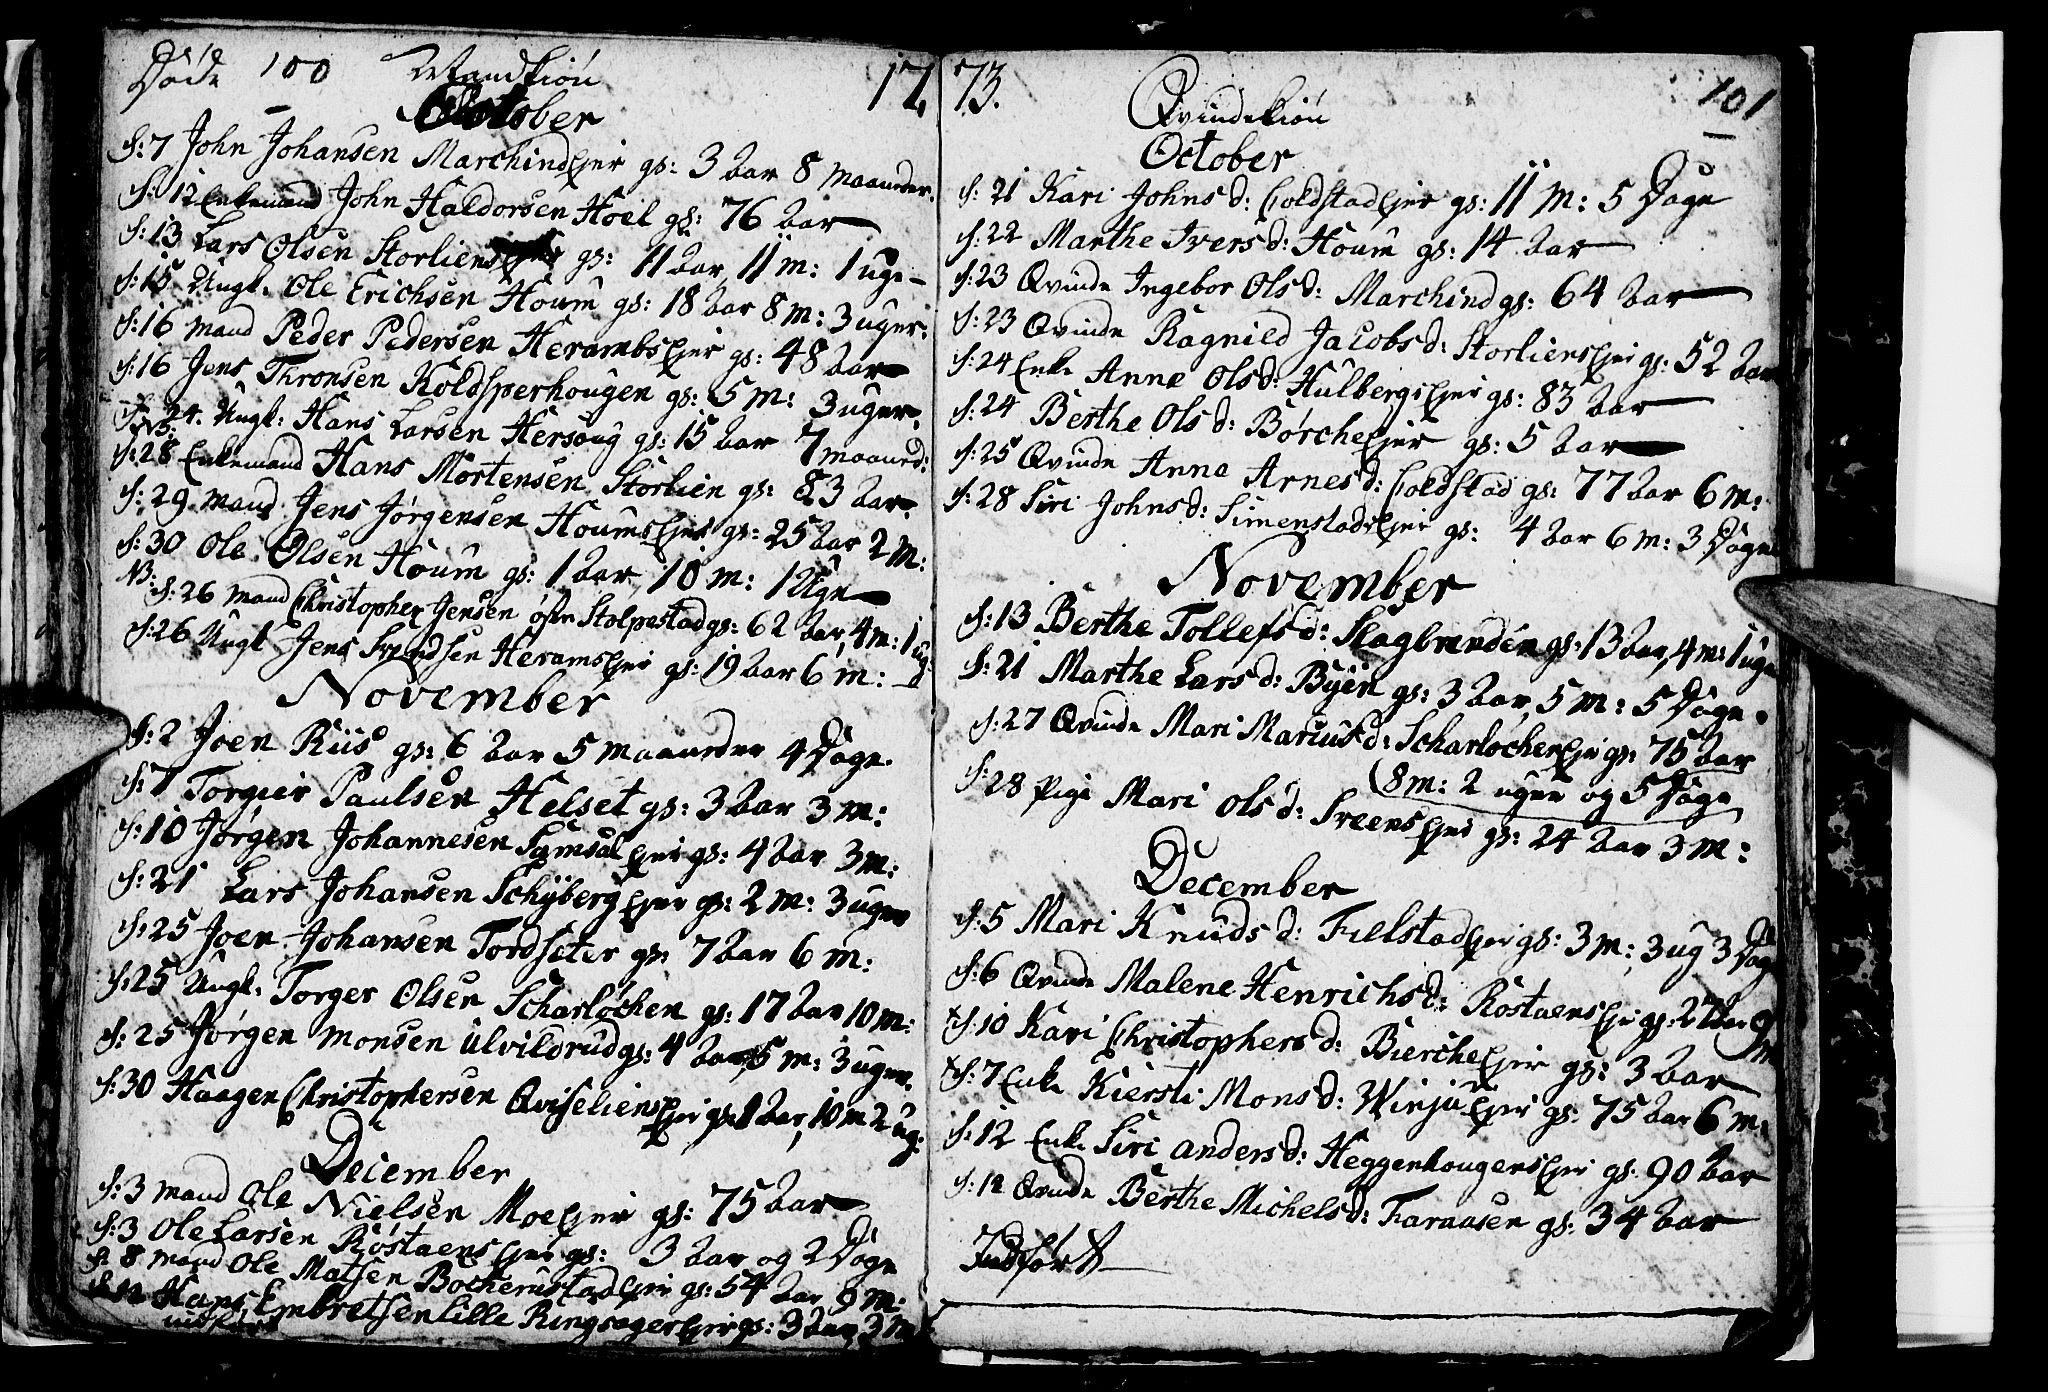 Døde 100 Mandkiøn 17
October
d: 7 John Johansen Marchind Ejer gs: 3 Aar 8 Maaneder.
d: 12 Enkemand John Haldorsen Hoel gs: 76 Aar
d: 13 Lars Olsen Storliens Ejer gs: 11 Aar, 11 m: 1 uge
d: 15 Ungk. Ole Erichsen Houm gs: 18 Aar 8 m: 3 uger.
d: 16 Mand Peder Pedersen Herambs Ejer gs: 48 Aar
d: 16 Jens Thronsen Koldsperhougen gs: 5 m: 3 uger.
d: 24. Ungk: Hans Larsen Hersoug gs: 15 Aar 7 maaned:
NB:
d: 28 Enkemand Hans Mortensen Storlien gs: 83 Aar.
d: 29 Mand Jens Jørgensen Houms Ejer gs: 25 Aar 2 m:
d: 30 Ole Olsen Houm gs: 1 Aar, 10 m: 1 Uge
NB: d: 26 Mand Christopher Jensen Stolpestad gs: 62 Aar, 4 m: 1 ug:
d: 26 Ungk Jens Svendsen Herams Ejer gs: 19 Aar 6 m:
November
d: 2 Joen Riis gs: 6 Aar 5 maaneder 4 Dage.
d: 7 Torgier Paulsen Helset gs: 3 Aar 3 m:
d: 10 Jørgen Johannesen Samsal Ejer gs: 4 Aar 3 m:
d: 21 Lars Johansen Schyberg Ejer gs: 2 m: 3 uger
d: 25 Joen Johansen Tordseter gs: 7 Aar 6 m:
d: 25 Ungk. Torger Olsen Scharløchen gs: 17 Aar 10 m:
d: 25 Jørgen Monsen Ulvildrud gs: 4 Aar, 5 m: 3 uger.
d: 30 Haagen Christophersen Qviseliens Ejer gs: 1 Aar, 10 m 2 ug:
December
d: 3 Mand Ole Nielsen Moe Ejer gs: 75 Aar
d: 3 Ole Larsen Røstaens Ejer gs: 3 Aar og 2 Dage
d: 8 Mand Ole Matsen Bocherustad Ejer gs: 54 Aar 9 m:
d: 12 Hans Embretsen Lille Ringsager Ejer gs: 3 Aar, 3 m:
indført
73. Qvindekiøn 101
October
d: 21 Kari Johnsd: Coldstad Ejer gs: 11 m: 5 Dage
d: 22 Marthe Iversd: Houm gs: 14 Aar
d: 23 Qvinde Ingebor Olsd: Marchind gs: 64 Aar
d: 23 Qvinde Ragnild Jacobsd: Storliens Ejer gs: 52 Aar
d: 24 Enke Anne Olsd: Hulbergs Ejer gs: 83 Aar
d: 24 Berthe Olsd: Børche Ejer gs: 5 Aar
d: 25 Qvinde Anne Arnesd: Coldstad gs: 77 Aar 6 m:
d: 28 Siri Johnsd: Simenstads Ejer gs: 4 Aar 6 m: 3 Dage
November
d: 13 Berthe Tollefsd: Slagbrenden gs: 13 Aar, 4 m: 1 uge
d: 21 Marthe Larsd: Byen gs: 3 Aar 5 m: 5 Dage.
d: 27 Qvinde Mari Mariusd: Scharløchen Ejer gs: 75 Aar
(8 m: 2 uger og 5 Dage
d: 28 Pige Mari Olsd: Sveens Ejer gs: 24 Aar 3 m:
December
d: 5 Mari Knudsd: Fielstad Ejer gs: 3 m: 3 ug 3 Dage
d: 6 Qvinde Malene Henrichsd: Røstaens Ejer gs: 27 Aar 9 m
d: 10 Kari Christophersd: Bierche Ejer gs: 3 Aar
d: 7 Enke Kiersti Monsd: Winju Ejer gs: 75 Aar 6 m:
d: 12 Enke Siri Andersd: Heggenhougens Ejer gs: 90 Aar
d: 12 Qvinde Berthe Michelsd: Faraasen gs: 34 Aar
Indført